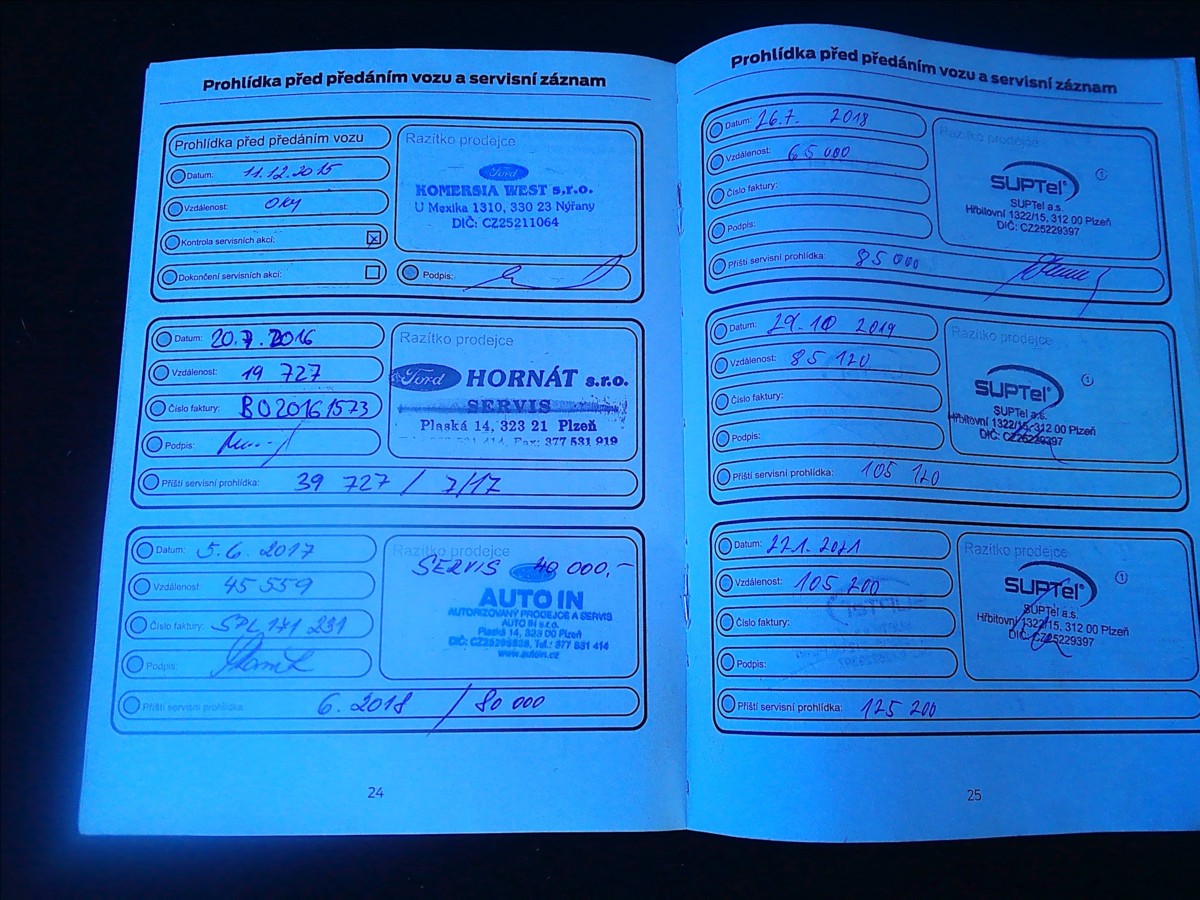 Prohlídka před předáním vozu a servisní záznam
Prohlídka před předáním vozu
Datum: 11.12.2015
Vzdálenost: 0km
Kontrola servisních akcí:
Dokončení servisních akcí:
Razítko prodejce
Ford
KOMERSIA WEST s.r.o.
U Mexika 1310, 330 23 Nýřany
DIČ: CZ25211064
Podpis:
Datum: 20.7.2016
Vzdálenost: 19 727
Číslo faktury: BO20161573
Podpis:
Příští servisní prohlídka: 39 727 / 7/17
Razítko prodejce
Ford HORNÁT s.r.o.
SERVIS
Plaská 14, 323 21 Plzeň
Fax: 377 531 919
Datum: 5.6.2017
Vzdálenost: 45 559
Číslo faktury: SPL 171 231
Podpis:
Příští servisní prohlídka: 6.2018 / 80 000
Razítko prodejce
SERVIS 40 000,-
Ford
AUTO IN
AUTORIZOVANÝ PRODEJCE A SERVIS
AUTO IN s.r.o.
Plaská 14, 323 00 Plzeň
www.autoin.cz
24
Prohlídka před předáním vozu a servisní záznam
Datum: 26.7. 2018
Vzdálenost: 65 000
Číslo faktury:
Podpis:
Příští servisní prohlídka: 85 000
Razítko prodejce
1
SUPTel
SUPTel a.s.
Hřbitovní 1322/15, 312 00 Plzeň
DIČ: CZ25229397
Datum: 29.10 2019
Vzdálenost: 85 120
Číslo faktury:
Podpis:
Příští servisní prohlídka: 105 120
Razítko prodejce
1
SUPTel
SUPTel a.s.
Hřbitovní 1322/15, 312 00 Plzeň
DIČ: CZ25229397
Datum: 22.1. 2021
Vzdálenost: 105 200
Číslo faktury:
Podpis:
Příští servisní prohlídka: 125 200
Razítko prodejce
1
SUPTel
SUPTel a.s.
Hřbitovní 1322/15, 312 00 Plzeň
DIČ: CZ25229397
25